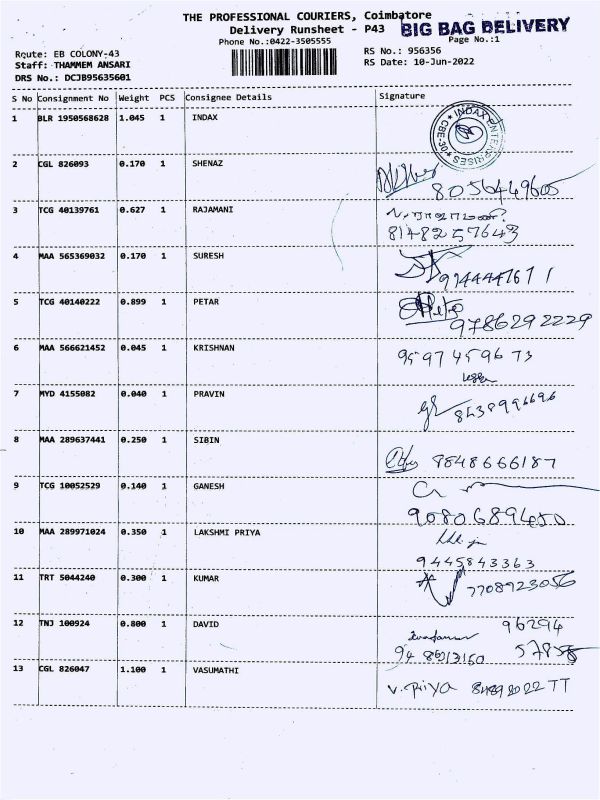 THE PROFESSIONAL COURIERS, Coimbatore
Delivery Runsheet - P43 BIG BAG DELIVERY
Phone No.:0422-3505555 Page No.:1
Route: EB COLONY-43 RS No.: 956356
Staff: THAMMEM ANSARI RS Date: 10-Jun-2022
DRS No.: DCJB95635601
S No Consignment No Weight PCS Consignee Details Signature
1 BLR 1950568628 1.045 1 INDAX
INDAX ENTERPRISES CBE-30
2 CGL 826093 0.170 1 SHENAZ
8056449605
3 TCG 40139761 0.627 1 RAJAMANI
8148257643
4 MAA 565369032 0.170 1 SURESH
5 TCG 40140222 0.899 1 PETAR
9786292229
6 MAA 566621452 0.045 1 KRISHNAN
9597459673
7 MYD 4155082 0.040 1 PRAVIN
8438996696
8 MAA 289637441 0.250 1 SIBIN
9848666187
9 TCG 10052529 0.140 1 GANESH
9080689450
10 MAA 289971024 0.350 1 LAKSHMI PRIYA
9445843363
11 TRT 5044240 0.300 1 KUMAR
7708923056
12 TNJ 100924 0.800 1 DAVID
96294
57858
13 CGL 826047 1.100 1 VASUMATHI
V. Priya